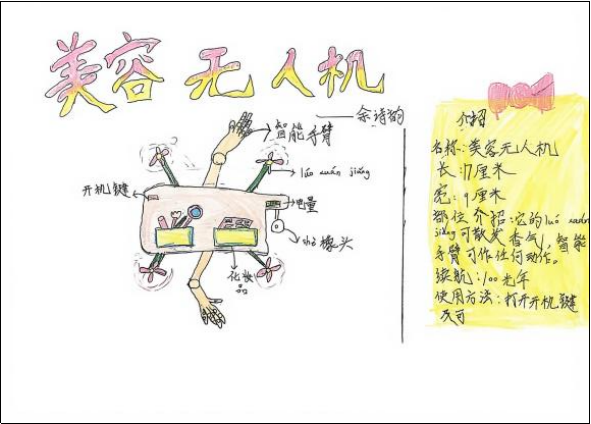 美容无人机
——余诗韵
智能手臂
luó xuán jiǎng
开机键
电量
橡头
化妆
品
介绍
名称:美容无人机
长:17厘米
宽:9厘米
部位介绍:它的luó xuán
jiǎng可散发香气,智能
手臂可作任何动作。
续航:100光年
使用方法:打开开机键
可